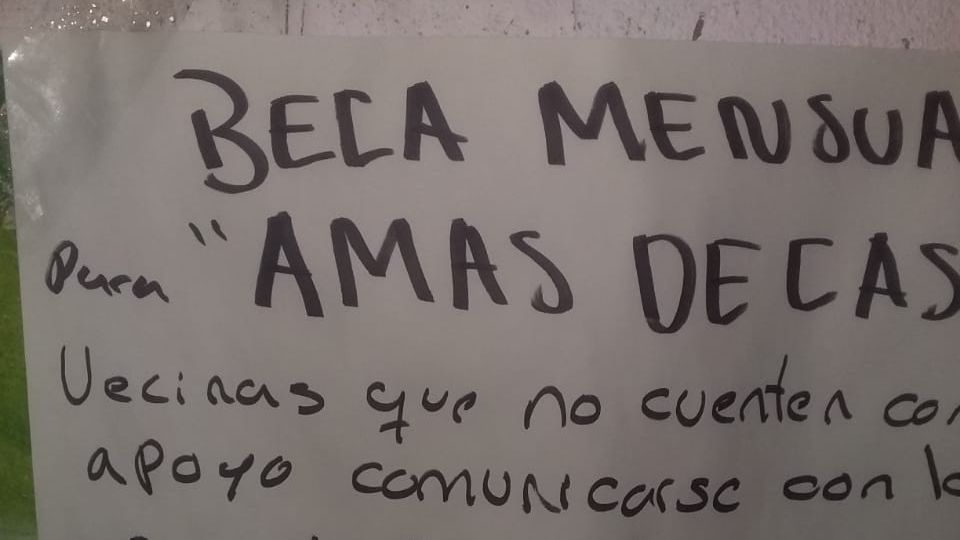 BECA MENSUA
Para "AMAS DE CAS
Vecinas que no cuenten con
apoyo comunicarse con l